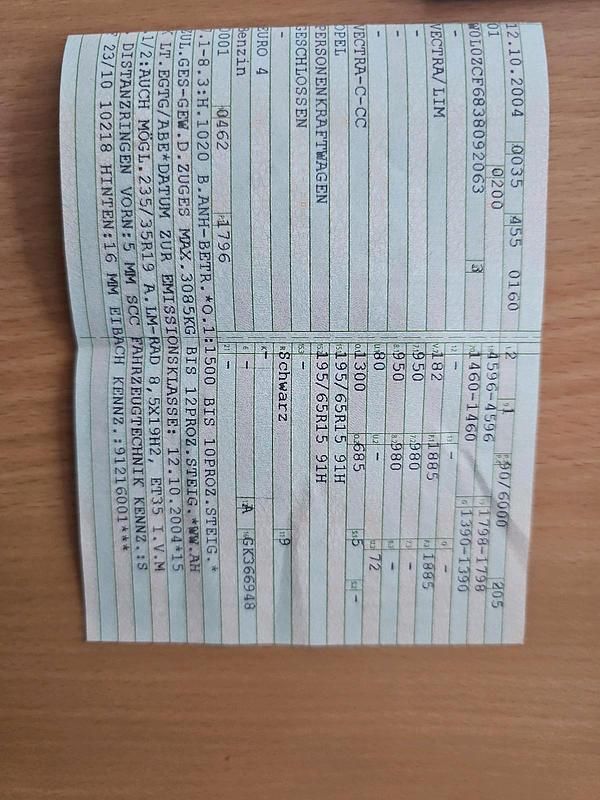 12.10.2004 0035 455 0160
01 0200
W0L0ZCF6838092063 3
-
VECTRA/LIM
-
-
VECTRA-C-CC
OPEL
PERSONENKRAFTWAGEN
GESCHLOSSEN
-
EURO 4
Benzin
0001 0462 1796
2 1 90/6000 205
4596-4596 1798-1798
1460-1460 1390-1390
- - -
182 1885 1885
950 980 -
950 980 -
80 - 72
1300 685 5 -
195/65R15 91H
195/65R15 91H
-
Schwarz 9
-
- A GK366948
-
7.1-8.3:H.1020 B.ANH-BETR.*O.1:1500 BIS 10PROZ.STEIG.*
ZUL.GES-GEW.D.ZUGES MAX.3085KG BIS 12PROZ.STEIG.*WW.AH
K LT.EGTG/ABE*DATUM ZUR EMISSIONSKLASSE: 12.10.2004*15
.1/2:AUCH MÖGL.235/35R19 A.LM-RAD 8,5X19H2, ET35 I.V.M
DISTANZRINGEN VORN:5 MM SCC FAHRZEUGTECHNIK KENNZ.:S
23/10 10218 HINTEN:16 MM EIBACH KENNZ.:91216001***